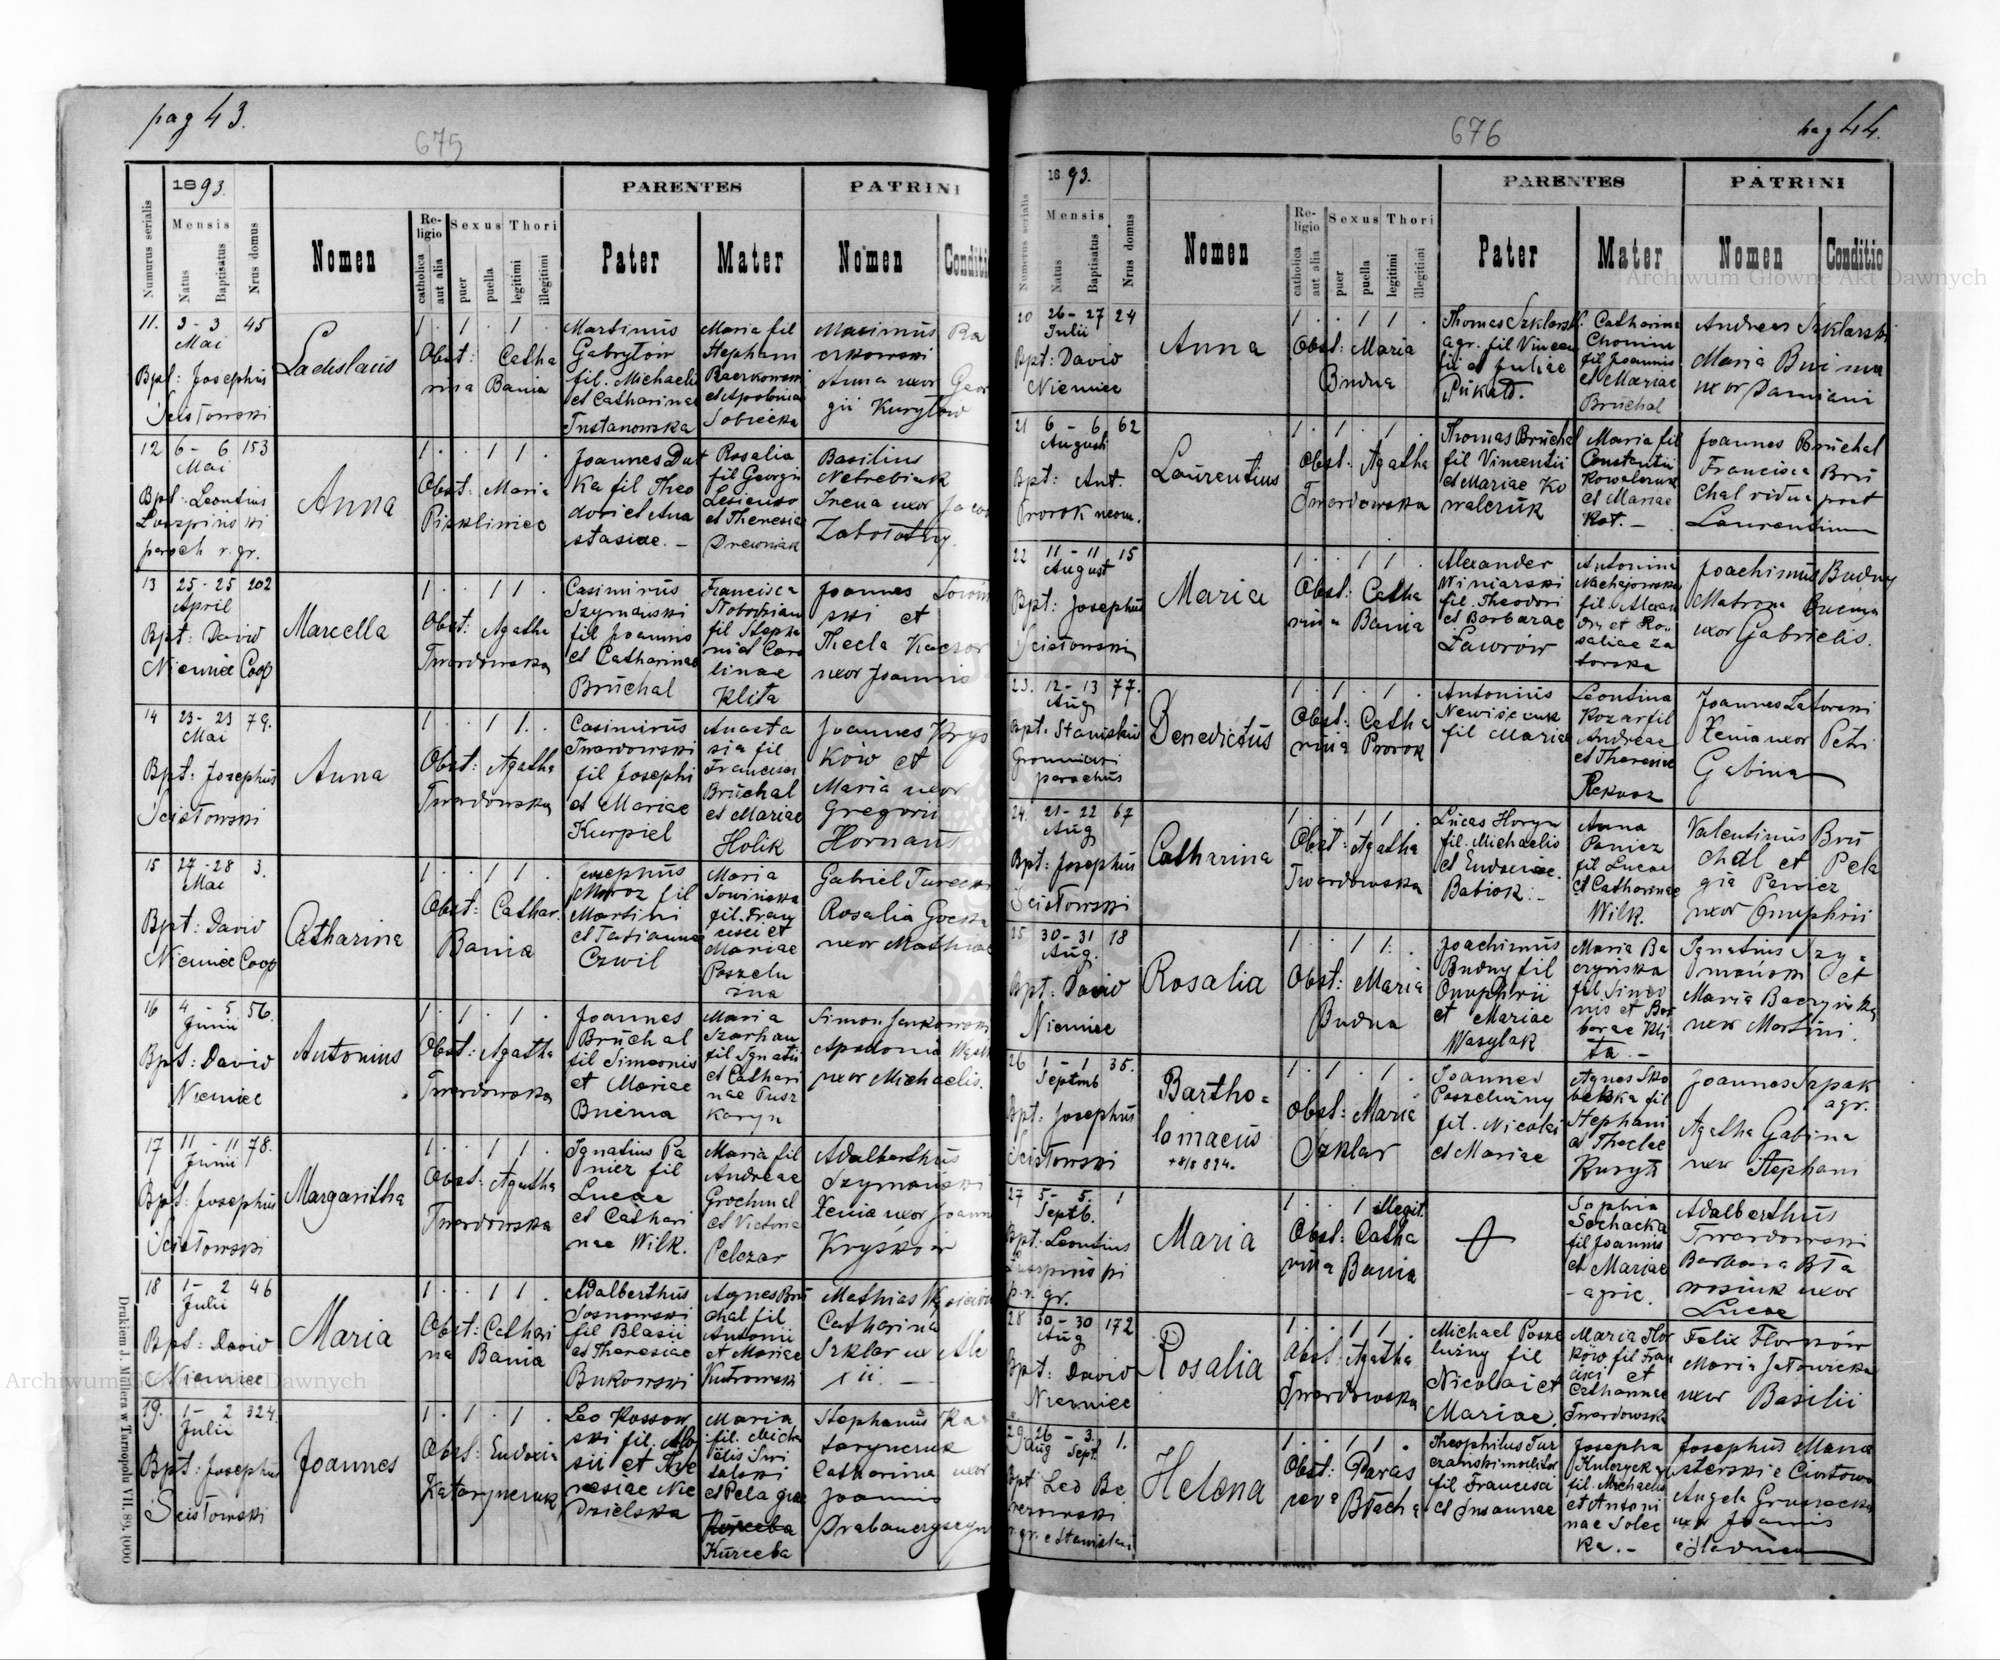 pag 43.
675
1893.
PARENTES
PATRINI
Numerus serialis
Mensis
Natus
Baptisatus
Nrus domus
Nomen
Religio
catholica
aut alia
Sexus
puer
puella
Thori
legitimi
illegitimi
Pater
Mater
Nomen
Conditi
11. 3 - 3 45
Mai
Bpt: Josephus
Scistowski
Ladislaus
1 . 1 . 1 .
Obst: Catha
rina Bania
Martinus
Gabrylow
fil. Michaelis
et Catharinae
Trstanowska
Maria fil
Stephani
Baczkowski
et Apolonia
Sobiecka
Maximus Ba
czkowski
Anna uxor Geor
gii Kurylow
12 6 - 6 153
Mai
Bpt: Leontius
Luszpinski
paroch r. gr.
Anna
1 . . 1 1 .
Obst: Maria
Pipkliniec
Joannes Dut
ka fil Theo
dori et Ana
stasiae. -
Rosalia
fil Georgii
et Theresiae
Drewniak
Basilius
Netrebiak
Irena uxor Jaco
Zabolotny.
13 25 - 25 202
April
Bpt: David
Niemiec Coop
Marcella
1 . . 1 1 .
Obst: Agatha
Twardowska
Casimirus
Szymanski
fil Joannis
et Catharinae
Brüchal
Francisca
Slobodzian
fil Stepha
ni et Caro
linae
Klita
Joannes Sowin
ski et
Thecla Kaczor
uxor Joannis
14 23 - 23 79.
Mai
Bpt: Josephus
Scistowski
Anna
1 . . 1 1. .
Obst: Agatha
Twardowska
Casimirus
Twardowski
fil Josephi
et Mariae
Kurpiel
Anasta
sia fil
Francisci
Brüchal
et Mariae
Holik
Joannes Krys
ków et
Maria uxor
Gregorii
Hornant
15 27 - 28 3.
Mai
Bpt: David
Niemiec Coop
Catharina
1 . . 1 1 .
Obst: Cathar.
Bania
Josephus
Moroz fil
Martini
et Tatianna
Czwil
Maria
Sowinska
fil. Fran
cisci et
Mariae
Poszelu
zna
Gabriel Turecki
Rosalia Gocka
uxor Mathiae
16 4 - 5 56.
Junii
Bpt: David
Niemiec
Antonius
1 . 1 . 1 .
Obst: Agatha
Twardowska
Joannes
Brüchal
fil Simeonis
et Mariae
Buczma
Maria
Szarhan
fil Ignatii
et Cathari
nae Pusz
karyn
Simon Jankowski
Apolonia
uxor Michaelis.
17 11 - 11 78.
Junii
Bpt: Josephus
Scistowski
Margaritha
1 . . 1 1 .
Obst: Agatha
Twardowska
Ignatius Pa
niez fil
Lucae
et Cathari
nae Wilk.
Maria fil
Andreae
Grochmal
et Victoria
Pelczar
Adalberthus
Szymanski
Xenia uxor Joann
Kryskow
18 1 - 2 46
Julii
Bpt: David
Niemiec
Maria
1 . . 1 1 .
Obst: Cathari
na Bania
Adalberthus
Sosnowski
fil Blasii
et Theresiae
Bukowski
Agnes Brü
chal fil
Antonii
et Mariae
Kutrowski
Mathias
Catharina
Szklar ux Ale
xii. -
19. 1 - 2 324.
Julii
Bpt: Josephus
Scistowski
Joannes
1 . 1 . 1 .
Obst: Eudoxia
Kataryneruk
Leo Kossow
ski fil. Aloy
sii et The
resiae Nie
dzielska
Maria
fil. Micha
elis Swi
talski
et Pela giae
Kureeba
Stephanus Ka
taryneruk
Catharina uxor
Joannis
Drukiem J. Müllera w Tarnopolu VII. 89. 1000
676
pag 44.
1893.
PARENTES
PATRINI
Numerus serialis
Mensis
Natus
Baptisatus
Nrus domus
Nomen
Religio
catholica
aut alia
Sexus
puer
puella
Thori
legitimi
illegitimi
Pater
Mater
Nomen
Conditio
20 26 - 27 24
Julii
Bpt: David
Niemiec
Anna
1 . . 1 1 .
Obst: Maria
Budna
Thomas Szklarski
agr. fil Vincen
tii et Juliae
Catharina
Chomin
fil Joannis
et Mariae
Brüchal
Andreas Szklarski
Maria Buczma
uxor Damiani
21 6 - 6 62
Augusti
Bpt: Ant.
Prorok neom.
Laurentius
1 . 1 . 1 .
Obst: Agatha
Twardowska
Thomas Brüchal
fil Vincentii
et Mariae Ko
walczük
Maria fil
Constantii
Kowalczuk
et Mariae
Kot. -
Joannes Brüchal
Francisca Brü
chal vidua post
Laurentium
22 11 - 11 15
August
Bpt: Josephus
Scistowski
Maria
1 . . 1 1 .
Obst: Catha
rina Bania
Alexander
Winiarski
fil. Theodori
et Barbarae
Lawrów
Antonina
Nachajowska
fil. Alexan
dri et Ro
saliae Za
torska
Joachimus Budny
Matrona Buczma
uxor Gabrielis.
23. 12 - 13 77.
Aug
Bpt: Stanislaus
Gromnicki
parochus
Benedictus
1 . 1 . 1 .
Obst: Catha
rina Prorok
Antonius
fil Mariae
Leontina
Kozar fil
Andreae
et Theresiae
Rekusz
Joannes Zatorski
Xenia uxor Petri
Gabina
24. 21 - 22 67
Aug
Bpt: Josephus
Scistowski
Catharina
1 . . 1 1 .
Obst: Agatha
Twardowska
Lucas Horyn
fil. Michaelis
et Eudoxiae.
Babiok. -
Anna
Paniez
fil Lucae
et Catharinae
Wilk.
Valentinus Brü
chal et Pela
gia Paniez
uxor Onuphrii
25 30 - 31 18
Aug.
Bpt: David
Niemiec
Rosalia
1 . . 1 1 .
Obst: Maria
Budna
Joachimus
Budny fil
Onuphrii
et Mariae
Wasylak
Maria Ba
czynska
fil. Simeo
nis et Bar
barae Kli
ta. -
Ignatius Szy=
manski et
Maria Baczynska
uxor Martini.
26 1 - 1 35.
Septmb
Bpt: Josephus
Scistowski
Bartho=
lomaeus
+8/8 894.
1 . 1 . 1 .
Obst: Maria
Szklar
Joannes
Poszeluzny
fil. Nicolai
et Mariae
Agnes Sko
belska fil
Stephani
et Theclae
Kuryk
Joannes Szpak
agr.
Agatha Gabina
uxor Stephani
27 5 - 5. 1
Septb.
Bpt: Leontius
Luszpinski
p. r. gr.
Maria
1 . . 1 illegit.
Obst: Catha
rina Bania
Sophia
Sochacka
fil Joannis
et Mariae
- agric.
Adalberthus
Twardowski
Barbara Bła
wosiuk uxor
Lucae
28 30 - 30 172
Aug
Bpt: David
Niemiec
Rosalia
1 . . 1 1 .
Obst: Agatha
Twardowska
Michael Posze
luzny fil
Nicolai et
Mariae.
Maria Flor
ków fil Fran
cisci et
Catharinae
Twardowska
Felix Florków
Maria Jatowicka
uxor Basilii
29 26 - 3. 1.
Aug Sept.
Bpt Leo Be
rezowski
r. gr. e Stanislau
Helena
1 . . 1 1 .
Obst: Paras
ceva Błacha
Theophilus Tur
czanski molitor
fil Francisci
et Susannae
Josepha
Kulczycka
fil. Michaelis
et Antoni
nae Solec
ka. -
Josephus Mana
sterski e Czortowa
Angela Gruszecka
uxor Joannis
Archiwum Główne Akt Dawnych
Archiwum Główne Akt Dawnych